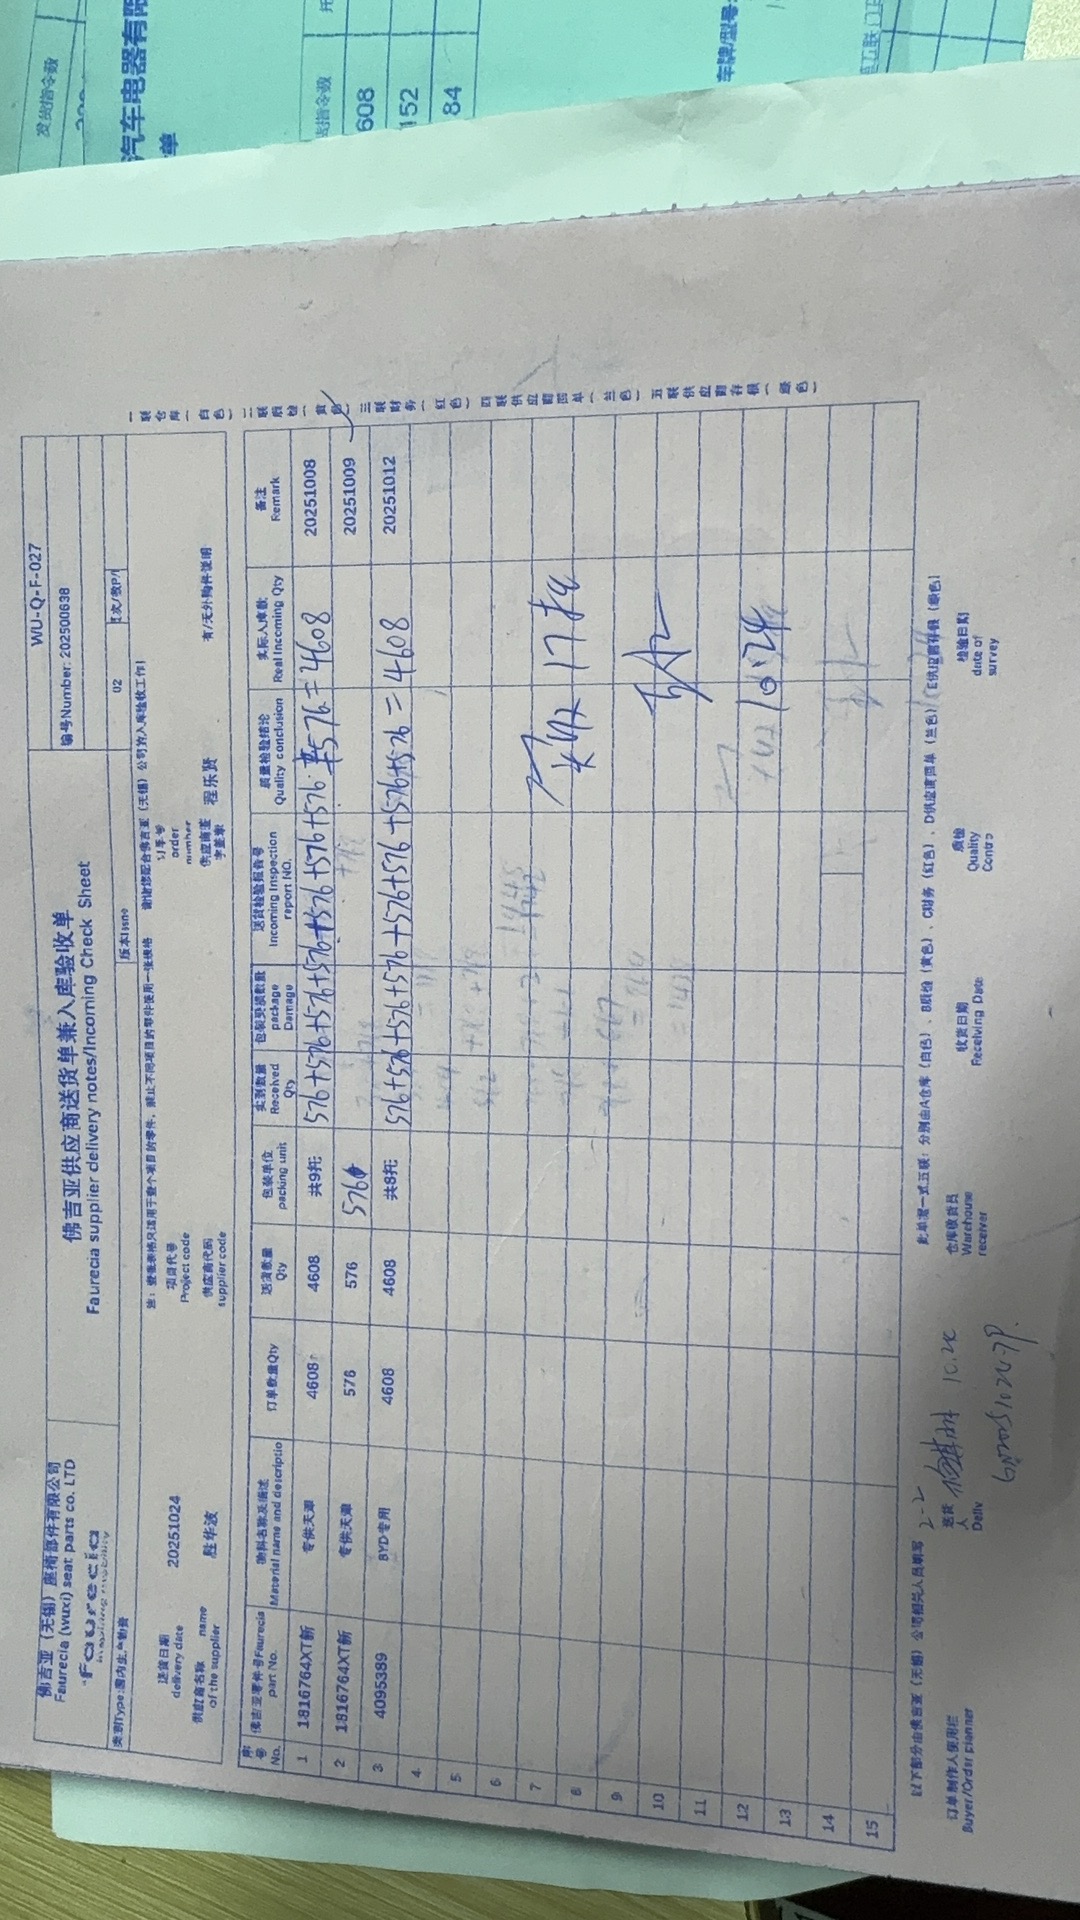 发货指令数
汽车电器有限
单
608
152
84
车牌/型号:
佛吉亚（无锡）座椅部件有限公司
Faurecia (wuxi) seat parts co. LTD
faurecia
佛吉亚供应商送货单兼入库验收单
Faurecia supplier delivery notes/Incoming Check Sheet
WU-Q-F-027
编号Number: 202500638
类别Type:国内生产物资
版本Issue
02
注：壹张表格只适用于壹个项目的零件，禁止不同项目的零件使用一张表格
谢谢您配合佛吉亚（无锡）公司的入库验收工作！
送货日期
delivery date
20251024
项目代号
Project code
订单号
order
number
供应商名称 name
of the supplier
胜华波
供应商代码
supplier code
供应商签
字盖章
程乐贤
有/无外购件说明
序号 No.
佛吉亚零件号Faurecia part No.
物料名称及描述 Material name and descriptio
订单数量Qty
送货数量 Qty
包装单位 packing unit
实到数量 Received Qty
包装受损数量 package Damage
送货检验报告号 Incoming Inspection report NO.
质量检验结论 Quality conclusion
实际入库数 Real Incoming Qty
备注 Remark
1 1816764XT新 专供天津 4608 4608 共9托 576+576+576+576+576+576+576+576=4608 20251008
2 1816764XT新 专供天津 576 576 576 20251009
3 4095389 BYD专用 4608 4608 共8托 576+576+576+576+576+576+576+576=4608 20251012
4
5
6
7
8
9
10
11
12
13
14
15
17托
10.24
一联仓库（白色）二联质检（黄色）三联财务（红色）四联供应商回单（兰色）五联供应商存根（绿色）
以下部分由佛吉亚（无锡）公司相关人员填写
此单据一式五联：分别由A仓库（白色）、B质检（黄色）、C财务（红色）、D供应商回单（兰色）、E供应商存根（绿色）
订单制作人使用栏
Buyer/Order planner
送货人
Deliv
10.24
仓库收货员
Warehouse
receiver
收货日期
Receiving Date
质检
Quality
Contro
检验日期
date of
survey